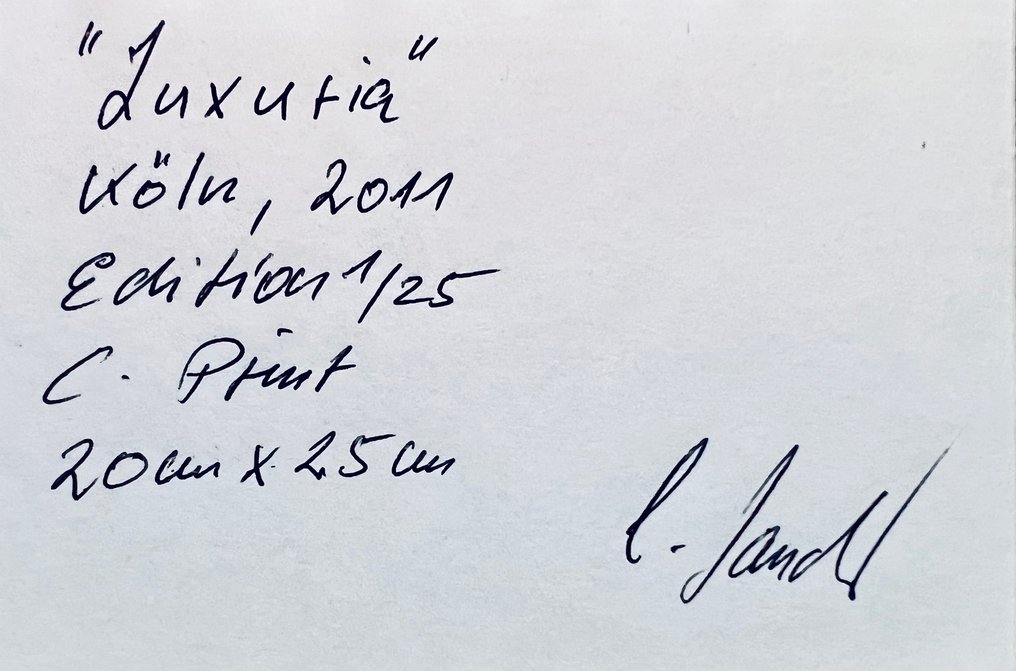 "Luxuria"
Köln, 2011
Edition 1/25
C. Print
20cm x 25cm